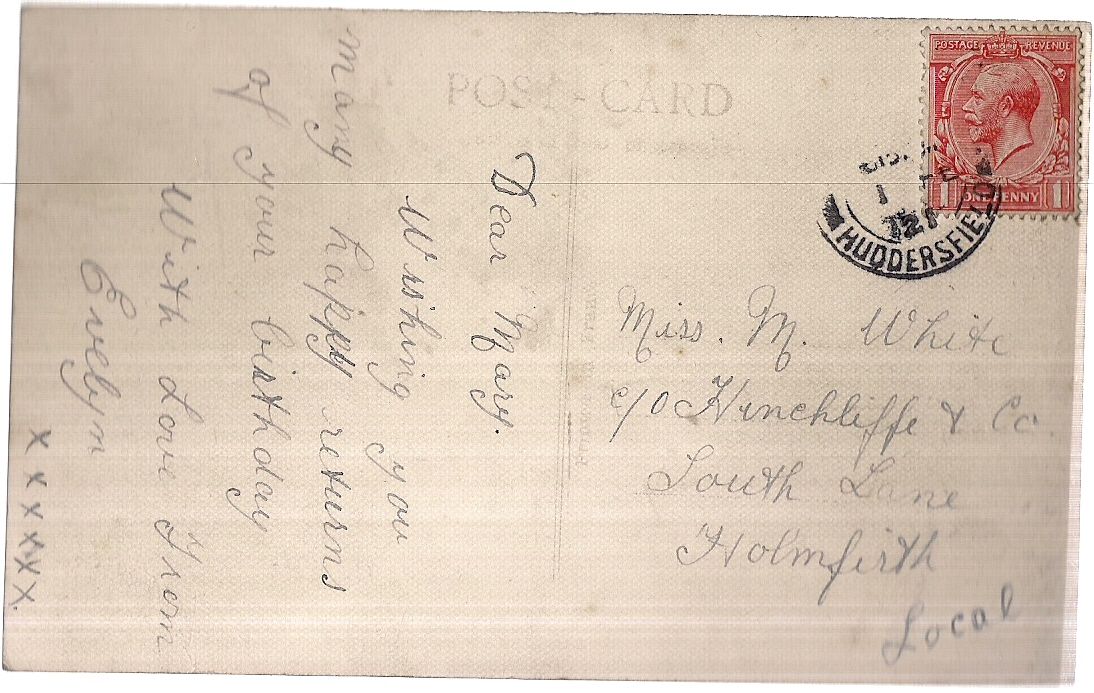 POST-CARD
Dear Mary.
Wishing you
many happy returns
of your birthday
With Love From
Evelyn
x x x x x x.
POSTAGE REVENUE
1 ONE PENNY 1
HUDDERSFIELD
Miss. M. White
c/o Hinchliffe & Co
South Lane
Holmfirth
Local